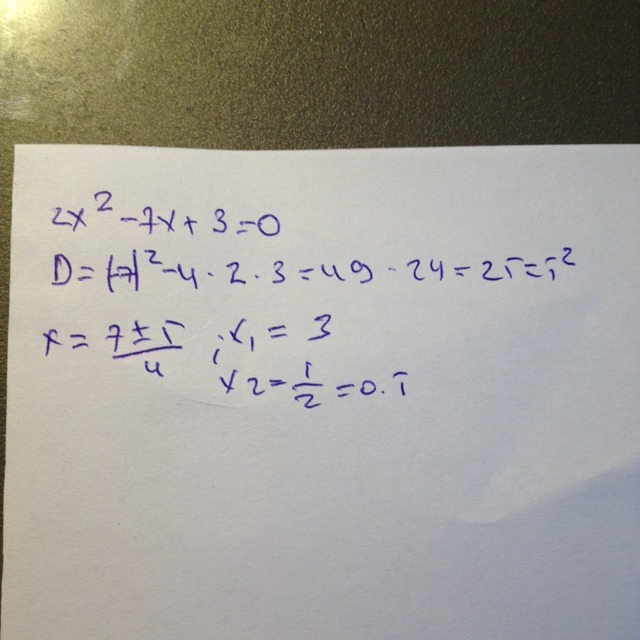 2x² - 7x + 3 = 0
D = (-7)² - 4 · 2 · 3 = 49 - 24 = 25 = 5²
x = (7 ± 5)/4 ; x₁ = 3
x2 = 1/2 = 0.5